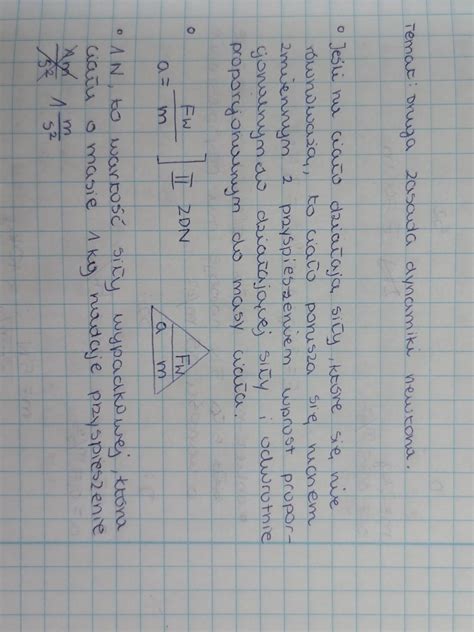 Temat: Druga zasada dynamiki newtona.
• Jeśli na ciało działają siły, które się nie
równoważą, to ciało porusza się ruchem
zmiennym z przyspieszeniem wprost propor-
cjonalnym do działającej siły i odwrotnie
proporcjonalnym do masy ciała.
• a = Fw/m ] II ZDN
Fw
a m
• 1N, to wartość siły wypadkowej, która
ciału o masie 1kg nadaje przyspieszenie
1 m/s²